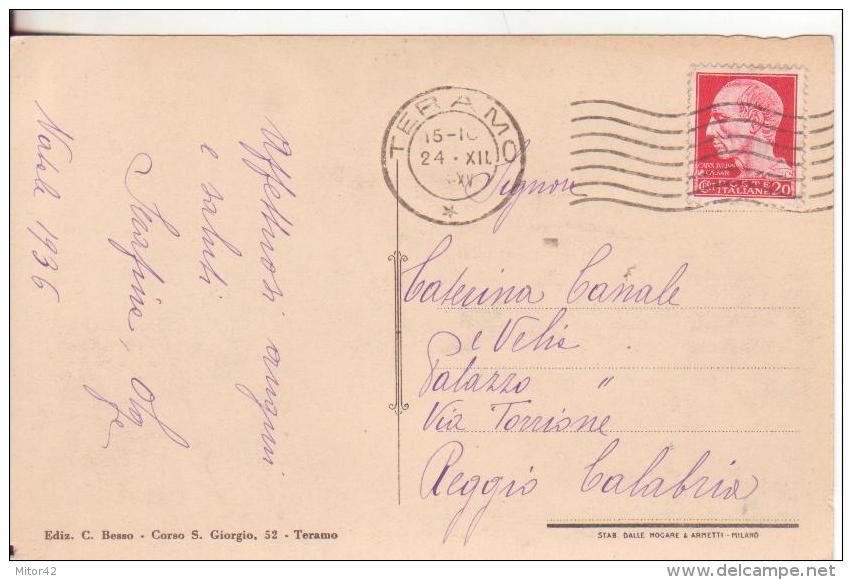 Natale 1936
Affettuosi auguri
e saluti
TERAMO
24 · XII.
CAIVS IVLIVS
CAESAR
POSTE
ITALIANE 20
Signore
Caterina Canale
e Velis
Palazzo "
Via Torrione
Reggio Calabria
Ediz. C. Besso - Corso S. Giorgio, 52 - Teramo
STAB. DALLE NOGARE & ARMETTI - MILANO
Mitor42